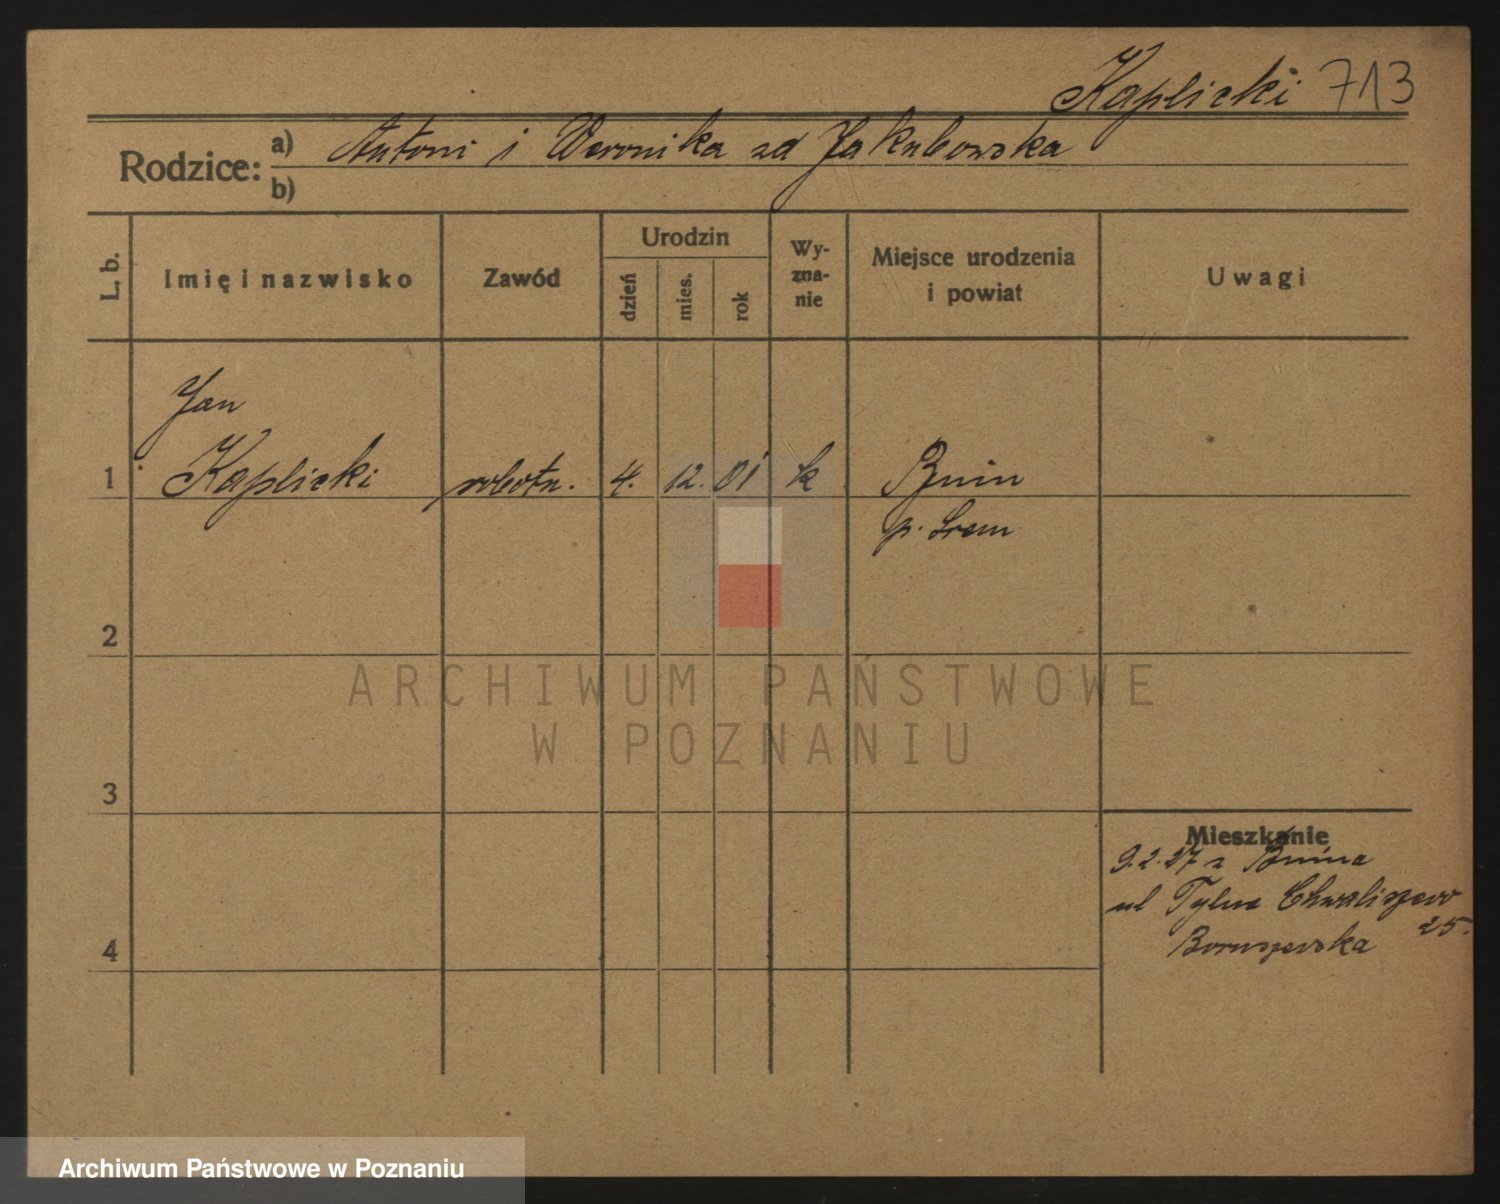 Kaplicki 713
Rodzice: a) Antoni i Weronika zd Jakubowska
b)
L. b.
Imię i nazwisko
Zawód
Urodzin
dzień
mies.
rok
Wy-
zna-
nie
Miejsce urodzenia
i powiat
Uwagi
Jan
1 Kaplicki robotn. 4. 12. 01 k Bnin
p. Śrem
2
ARCHIWUM PAŃSTWOWE
W POZNANIU
3
Mieszkanie
9.2.27 z Bnina
ul Tylne Chwaliszewo
25.
Boruszewska
4
Archiwum Państwowe w Poznaniu